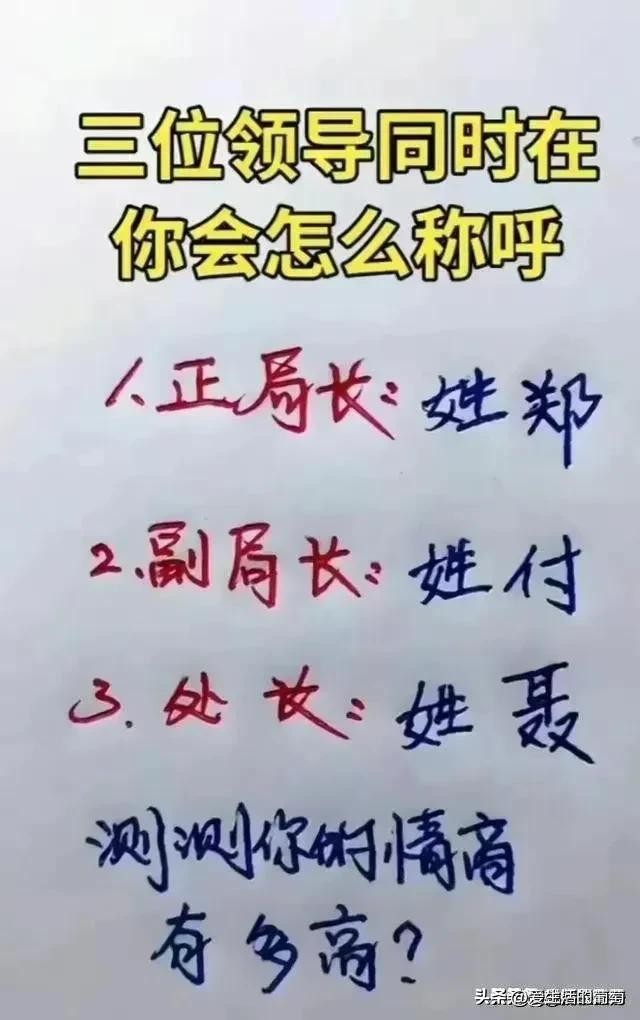 三位领导同时在
你会怎么称呼
1、正局长：姓郑
2、副局长：姓付
3、处长：姓聂
测测你的情商
有多高？